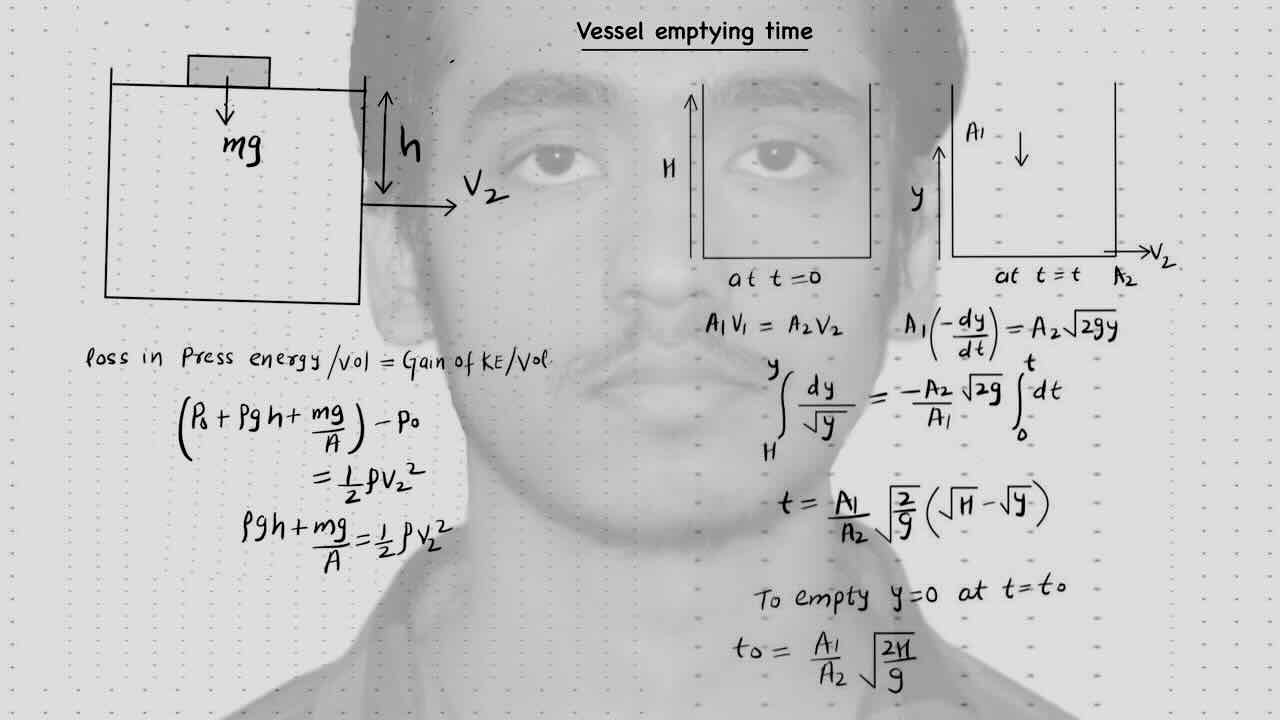 Vessel emptying time
mg
h
V₂
loss in Press energy/vol = Gain of KE/Vol
(P₀ + ρgh + mg/A) - P₀
= 1/2 ρV₂²
ρgh + mg/A = 1/2 ρV₂²
H
at t=0
A₁
y
V₂
at t=t
A₂
A₁V₁ = A₂V₂
A₁(-dy/dt) = A₂√2gy
∫_H^y dy/√y = -A₂/A₁ √2g ∫_0^t dt
t = A₁/A₂ √(2/g) (√H - √y)
To empty y=0 at t=t₀
t₀ = A₁/A₂ √(2H/g)